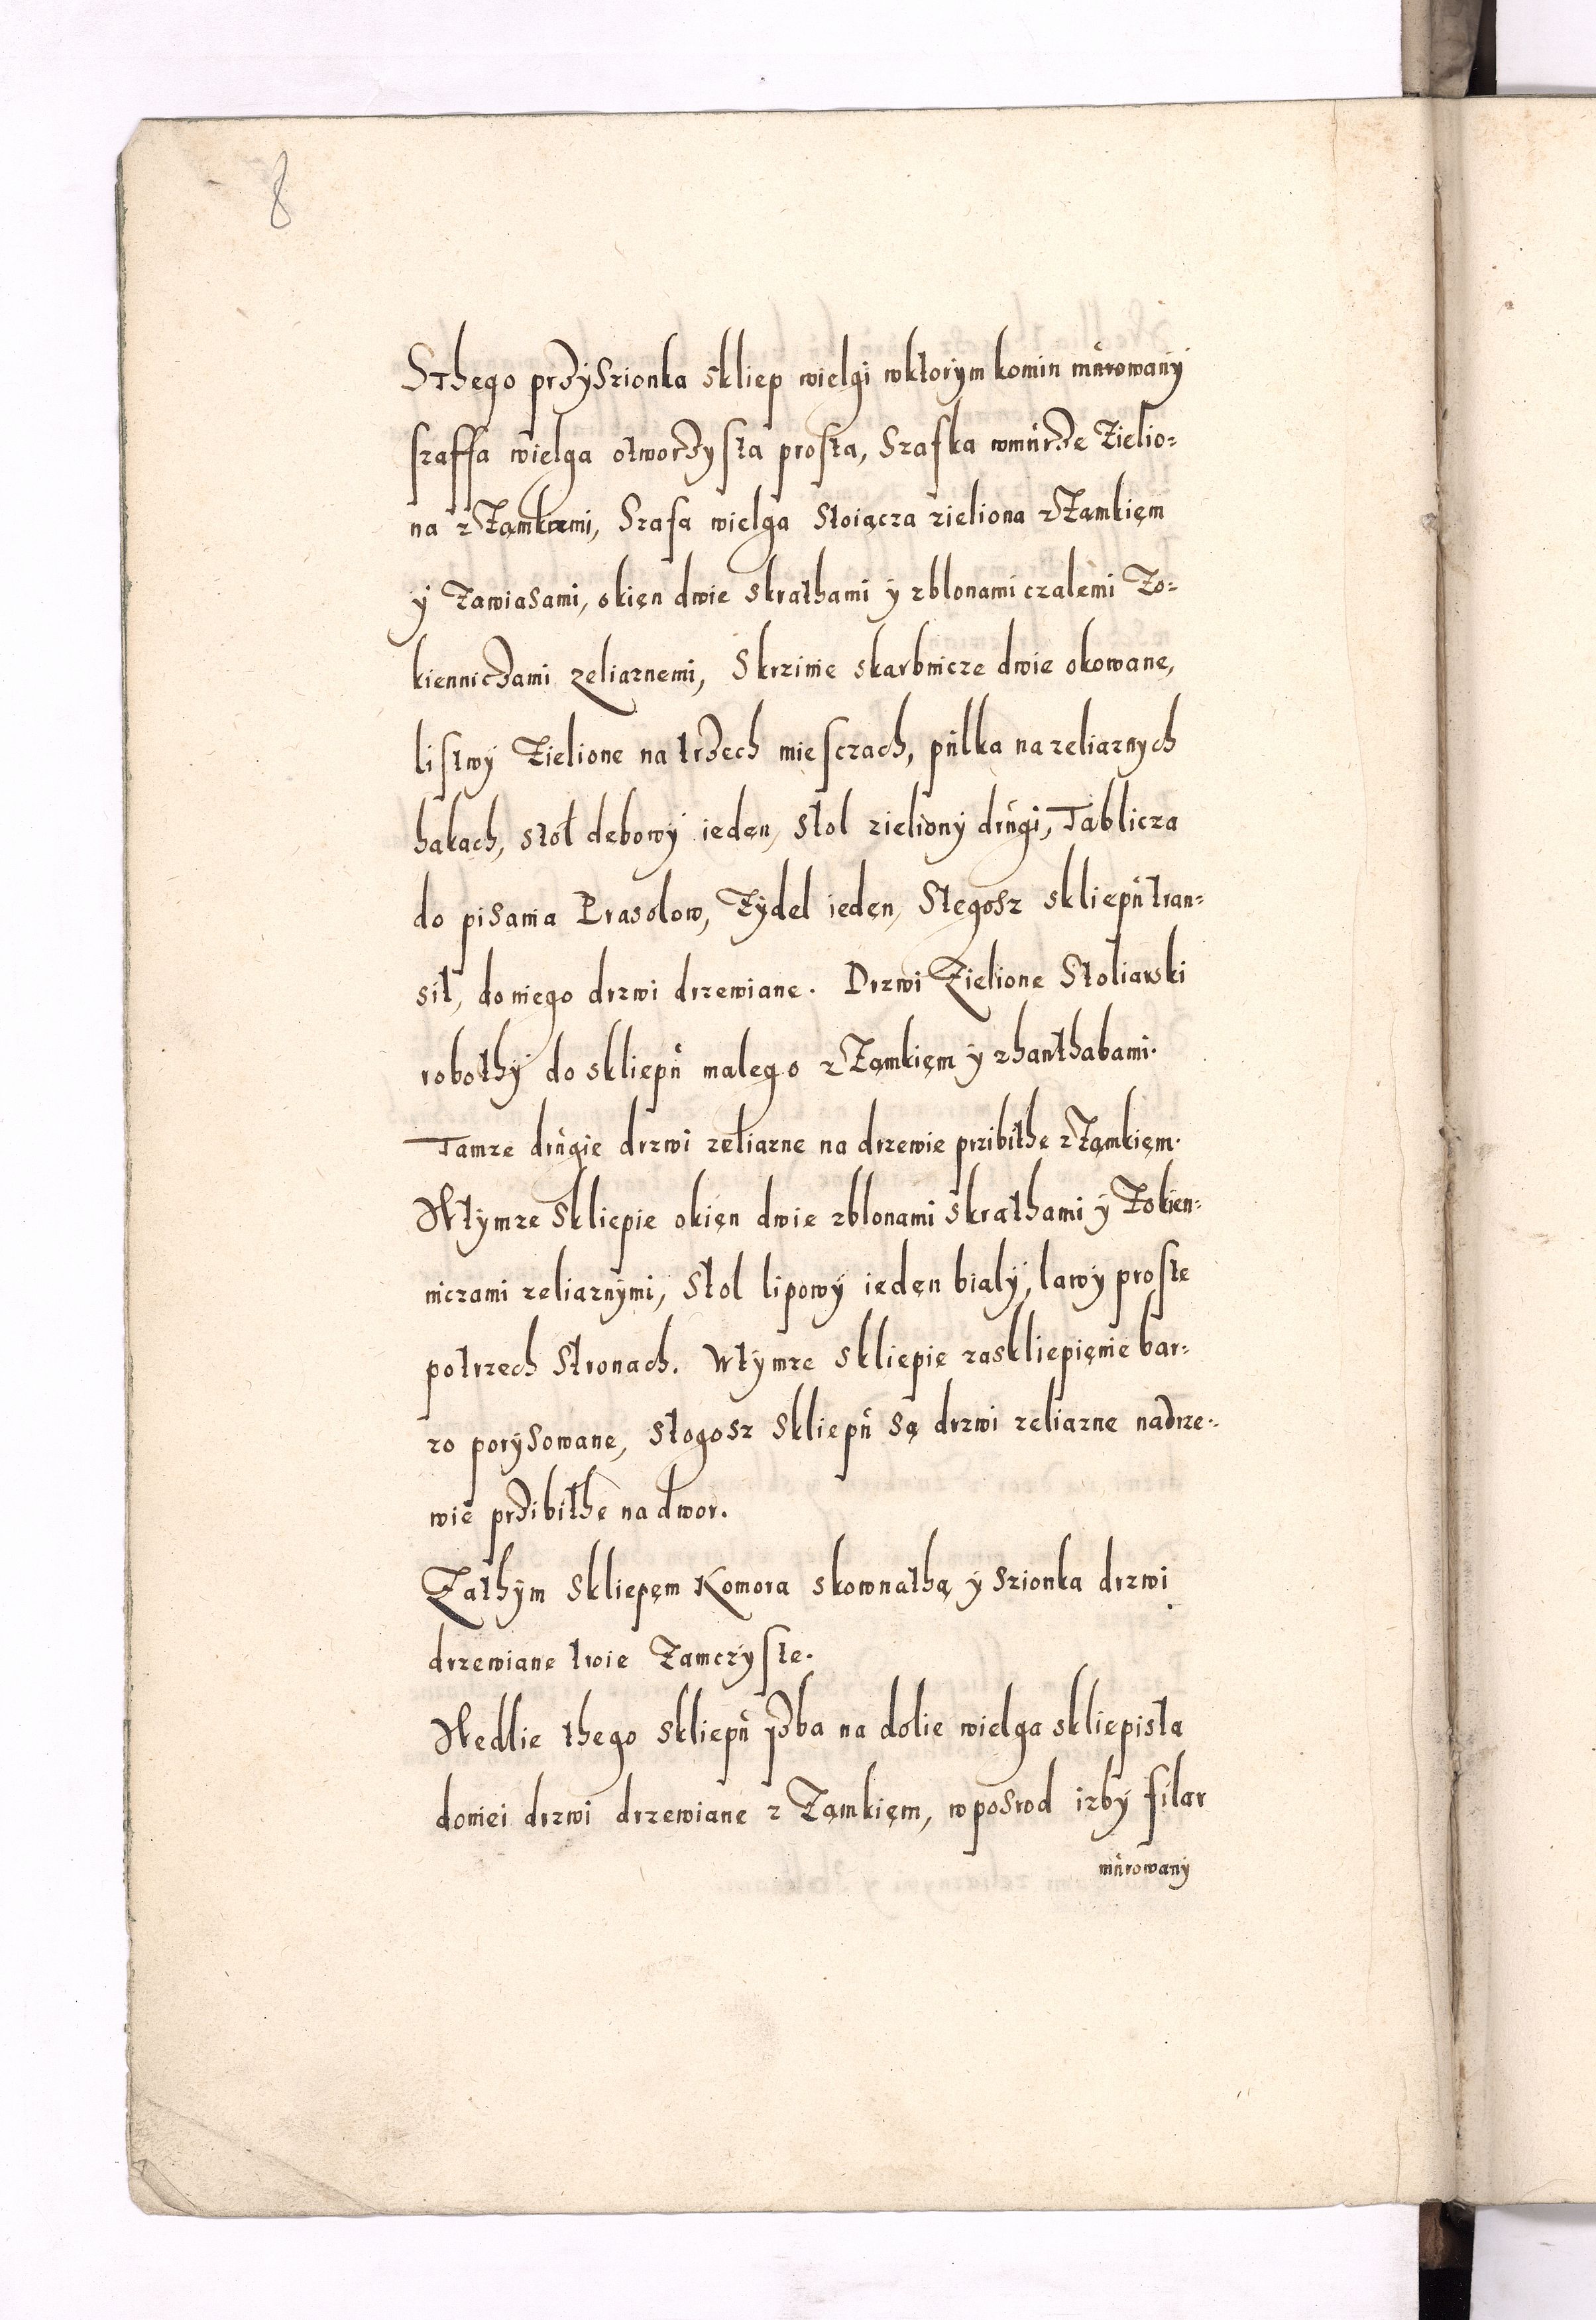 8
Sthego przyszionka skliep wielgi wktorym komin murowany
szaffa wielga otworzysta prosta, Szafka wmurze Zielio=
na zZamkami, Szafa wielga Stoiącza zieliona zZamkięm
y Zawiasami, okięn dwie skrathami y zblonami czalemi Zo=
kienniczami zeliaznemi, Skrzinie skarbnicze dwie okowane,
listwy Zielione na trzech miesczach, pulka na zeliaznych
hakach, stół debowy iedęn, stol zieliony drugi, Tablicza
do pisania Prasolow, Zydel iedęn, Stegosz skliepu tran=
sit, do niego drzwi drzewiane. Drzwi Zielione Stoliarski
robothy do skliepu malego zZamkięm y zhanthabami.
Tamze drugie drzwi zeliazne na drzewie przibithe zZamkięm.
Wtymze Skliepie okięn dwie zblonami skrathami y Zokien=
niczami zeliaznymi, Stol lipowy iedęn bialy, lawy proste
potrzech Stronach. Wtymze skliepie zaskliepięnie bar=
zo porysowane, stogosz Skliepu Są drzwi zeliazne nadrze=
wie przibithe na dwor.
Zathym Skliepęm Komora skownathą y szionka drzwi
drzewiane troie Zamczyste.
Wedlie thego Skliepu Izba na dolie wielga skliepista
doniei drzwi drzewiane z Zamkięm, wposrod izby filar
murowany